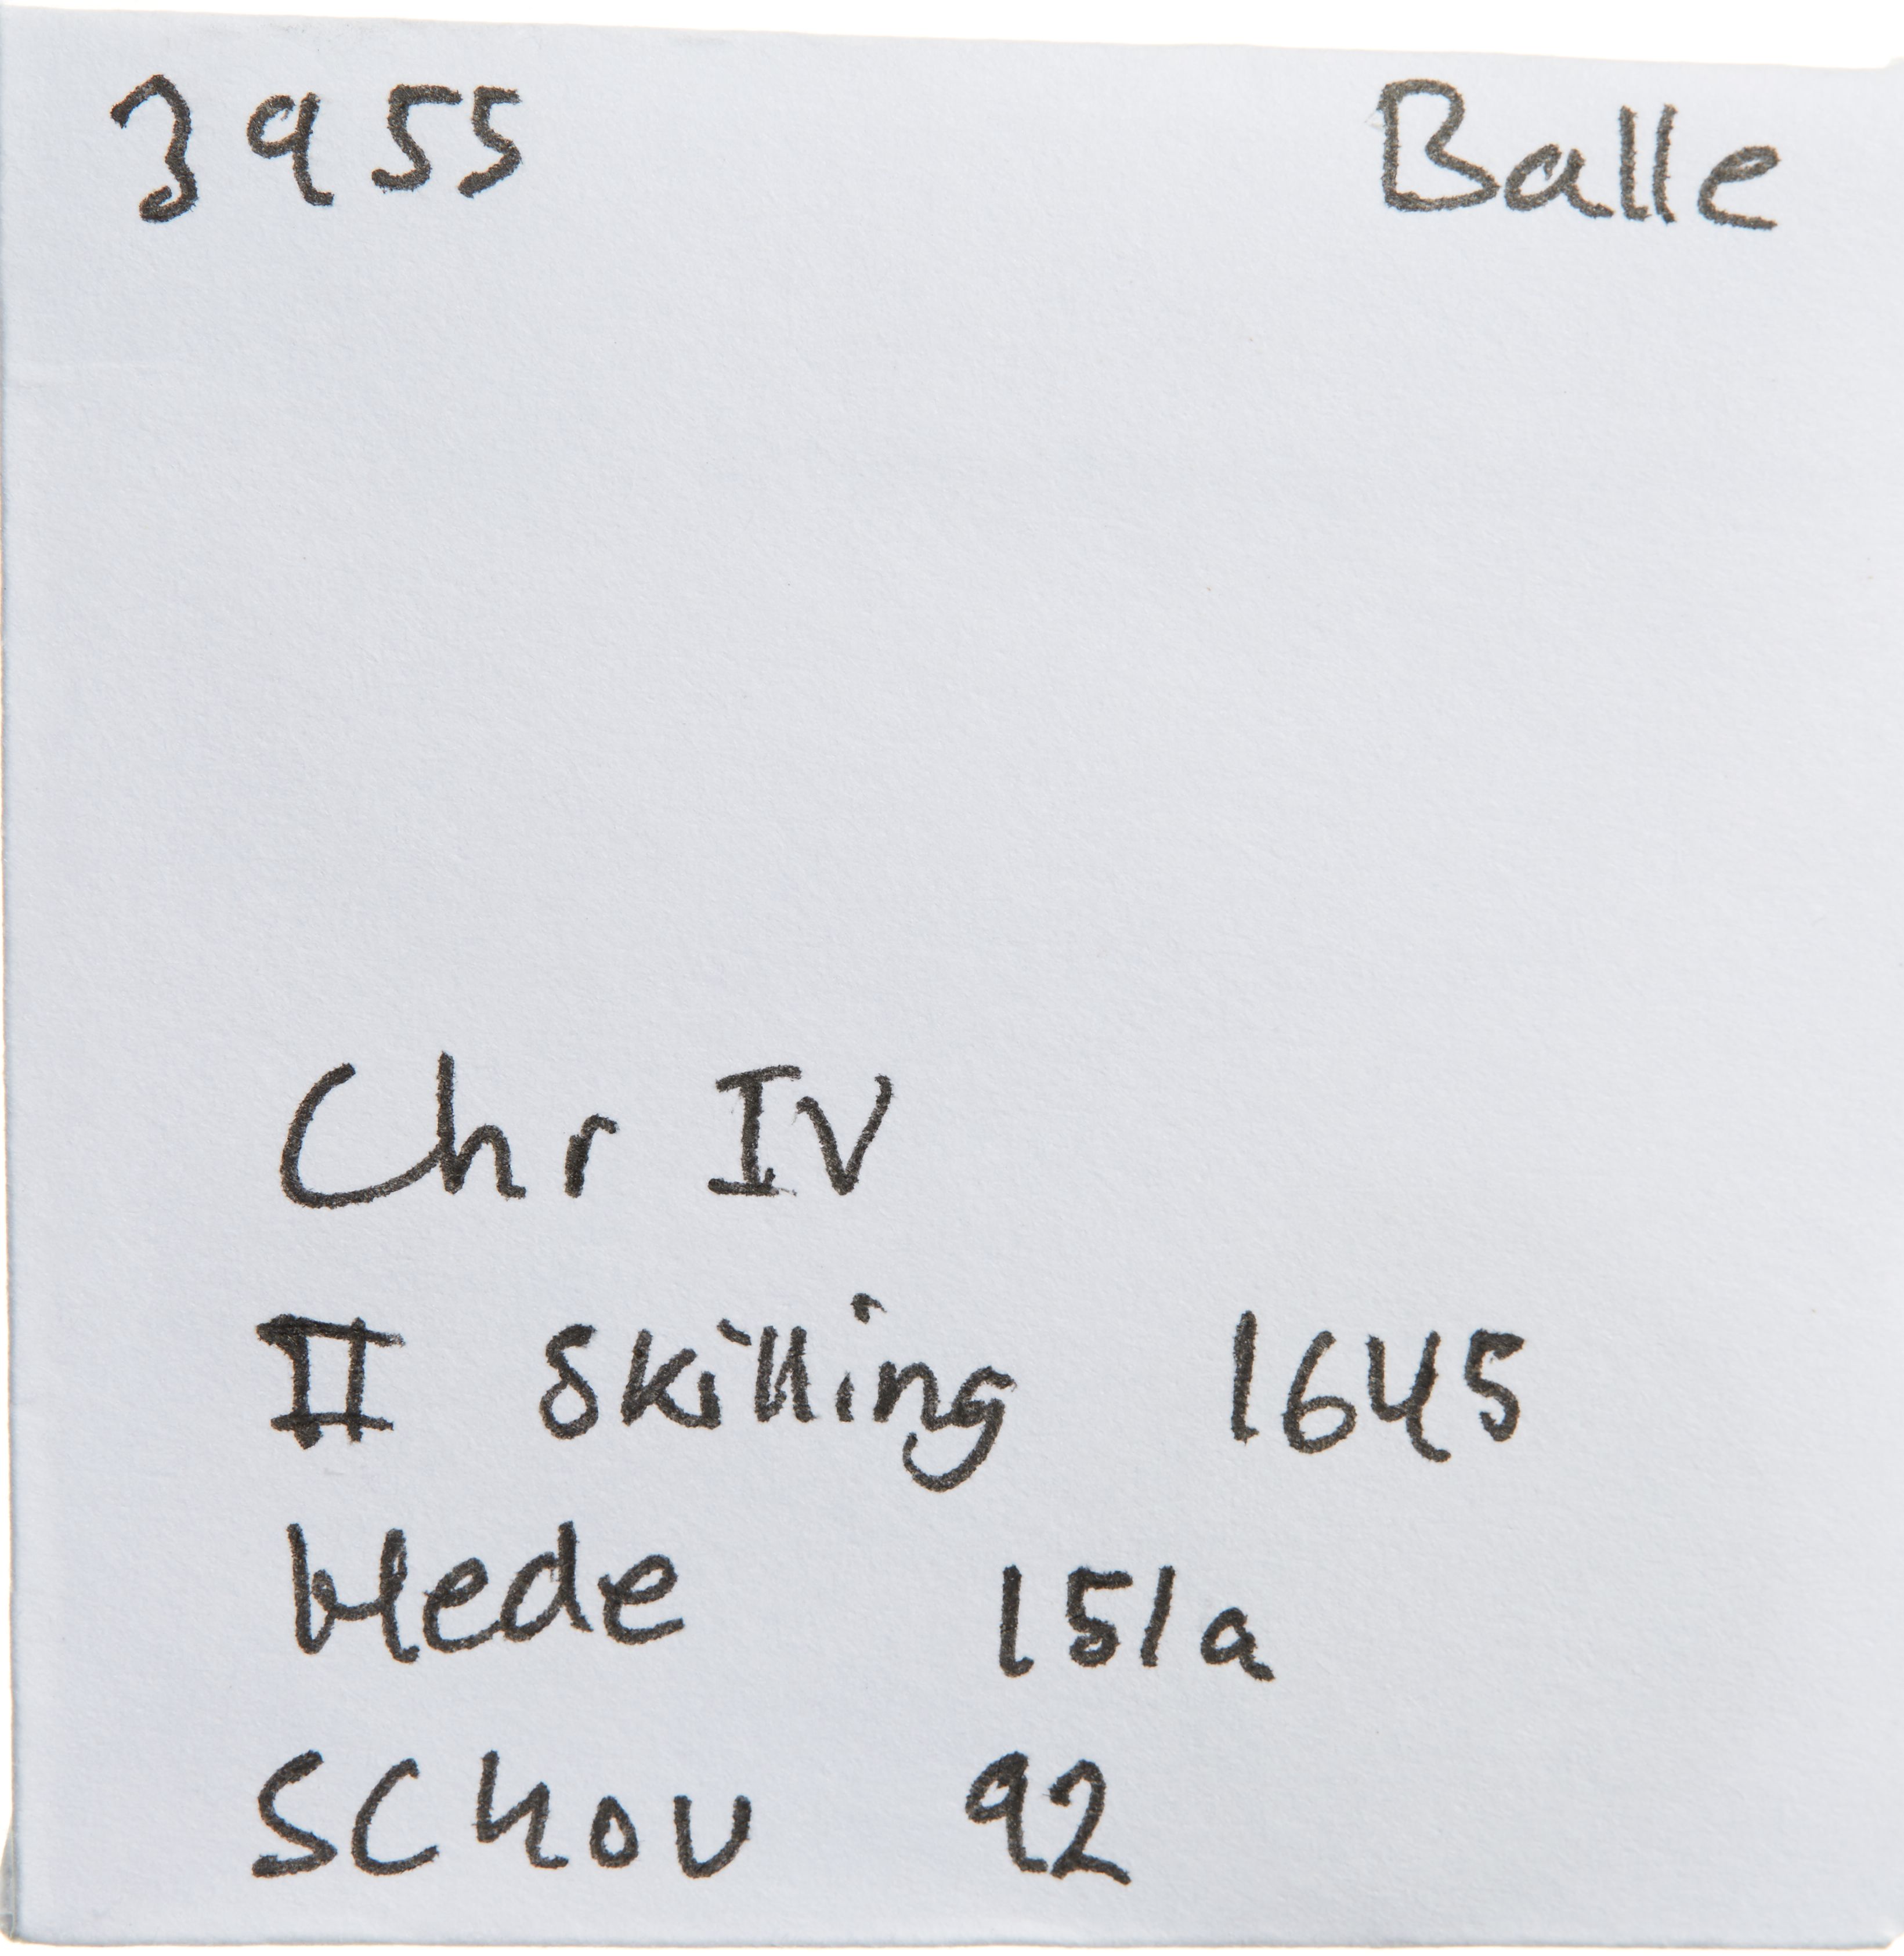 3955 Balle
Chr IV
II Skilling 1645
Hede 151a
Schou 92